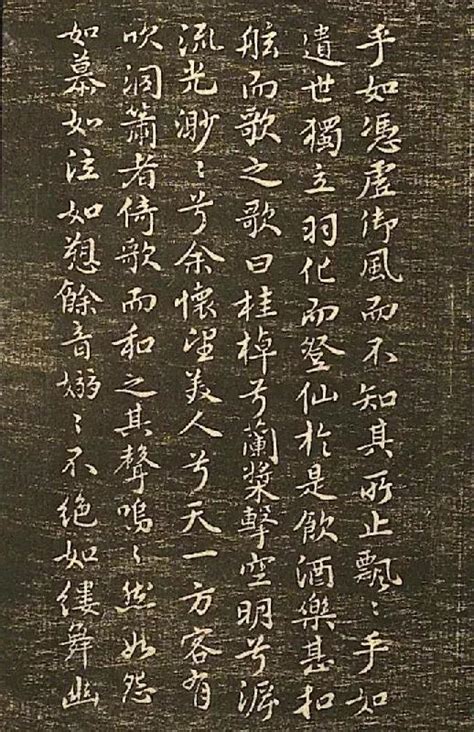 乎如憑虛御風而不知其所止飄〻乎如
遺世獨立羽化而登仙於是飲酒樂甚扣
舷而歌之歌曰桂棹兮蘭槳擊空明兮泝
流光渺〻兮余懷望美人兮天一方客有
吹洞簫者倚歌而和之其聲嗚〻然如怨
如慕如泣如愬餘音嫋〻不絕如縷舞幽